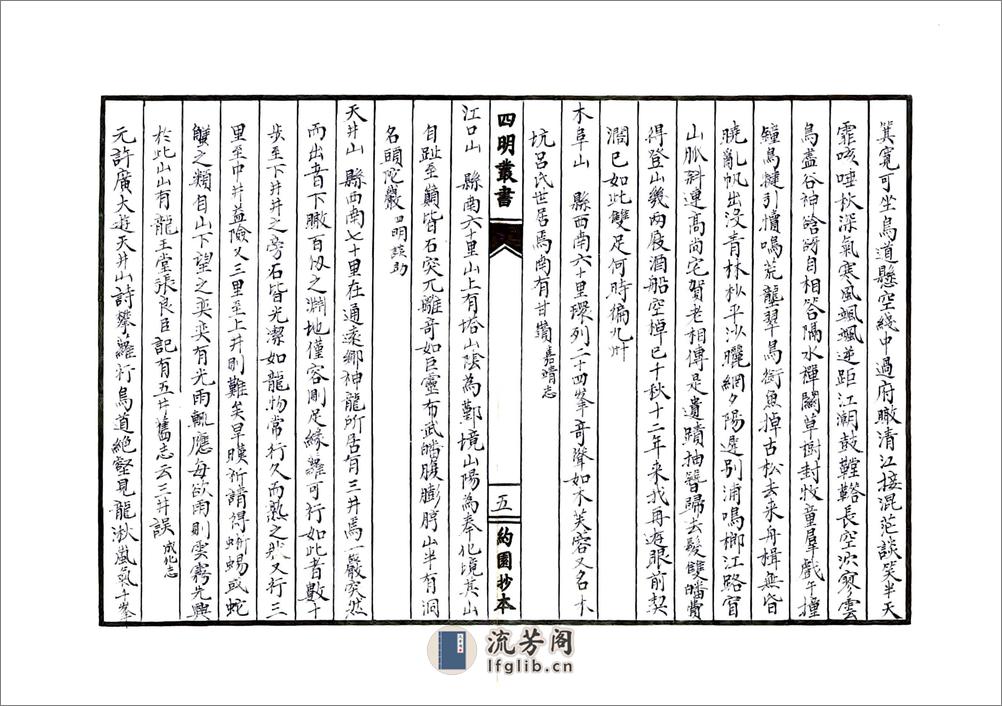 箕寬可坐鳥道懸空綫中過府瞰清江接混茫談笑半天
霏咳唾秋深氣寒風颯颯逆距江潮鼓鞺鞳長空泬寥雲
鳥盡谷神谽谺自相答隔水禪關草樹封牧童羣戲午撞
鐘鳥犍引犢鳴荒壟翠鳥銜魚掉古松去來舟楫無昏
曉亂帆出沒青林杪平沙曬網夕陽邊別浦鳴榔江路窅
山脈斜連高尚宅賀老相傳是遺蹟抽簪歸去髮雙皤賞
得登山幾兩屐酒船空棹已十秋十二年來我再遊眼前契
濶已如此雙足何時徧九州
木阜山 縣西南六十里環列二十四峯奇聳如木芙容又名木
坑呂氏世居焉南有甘嶺嘉靖志
四明叢書
五
約園抄本
江口山 縣南六十里山上有塔山陰為鄞境山陽為奉化境其山
自趾至巔皆石突兀離奇如巨靈布武皤腹膨脝山半有洞
名頭陀巖四明談助
天井山 縣西南七十里在通遠鄉神龍所居有三井焉一巖突然
而出者下瞰百仭之淵地僅容則足緣蘿可行如此者數十
步至下井井之旁石皆光潔如龍物常行久而熟之我又行三
里至中井益險又三里至上井則難矣旱暵祈請得蜥蜴或蛇
蟹之類自山下望之奕奕有光雨輒應每欲雨則雲霧先興
於此山山有龍王堂張良臣記有五井舊志云三井誤成化志
元許廣大遊天井山詩攀蘿行鳥道絕壑見龍湫嵐氣千峯
流芳阁
lfglib.cn